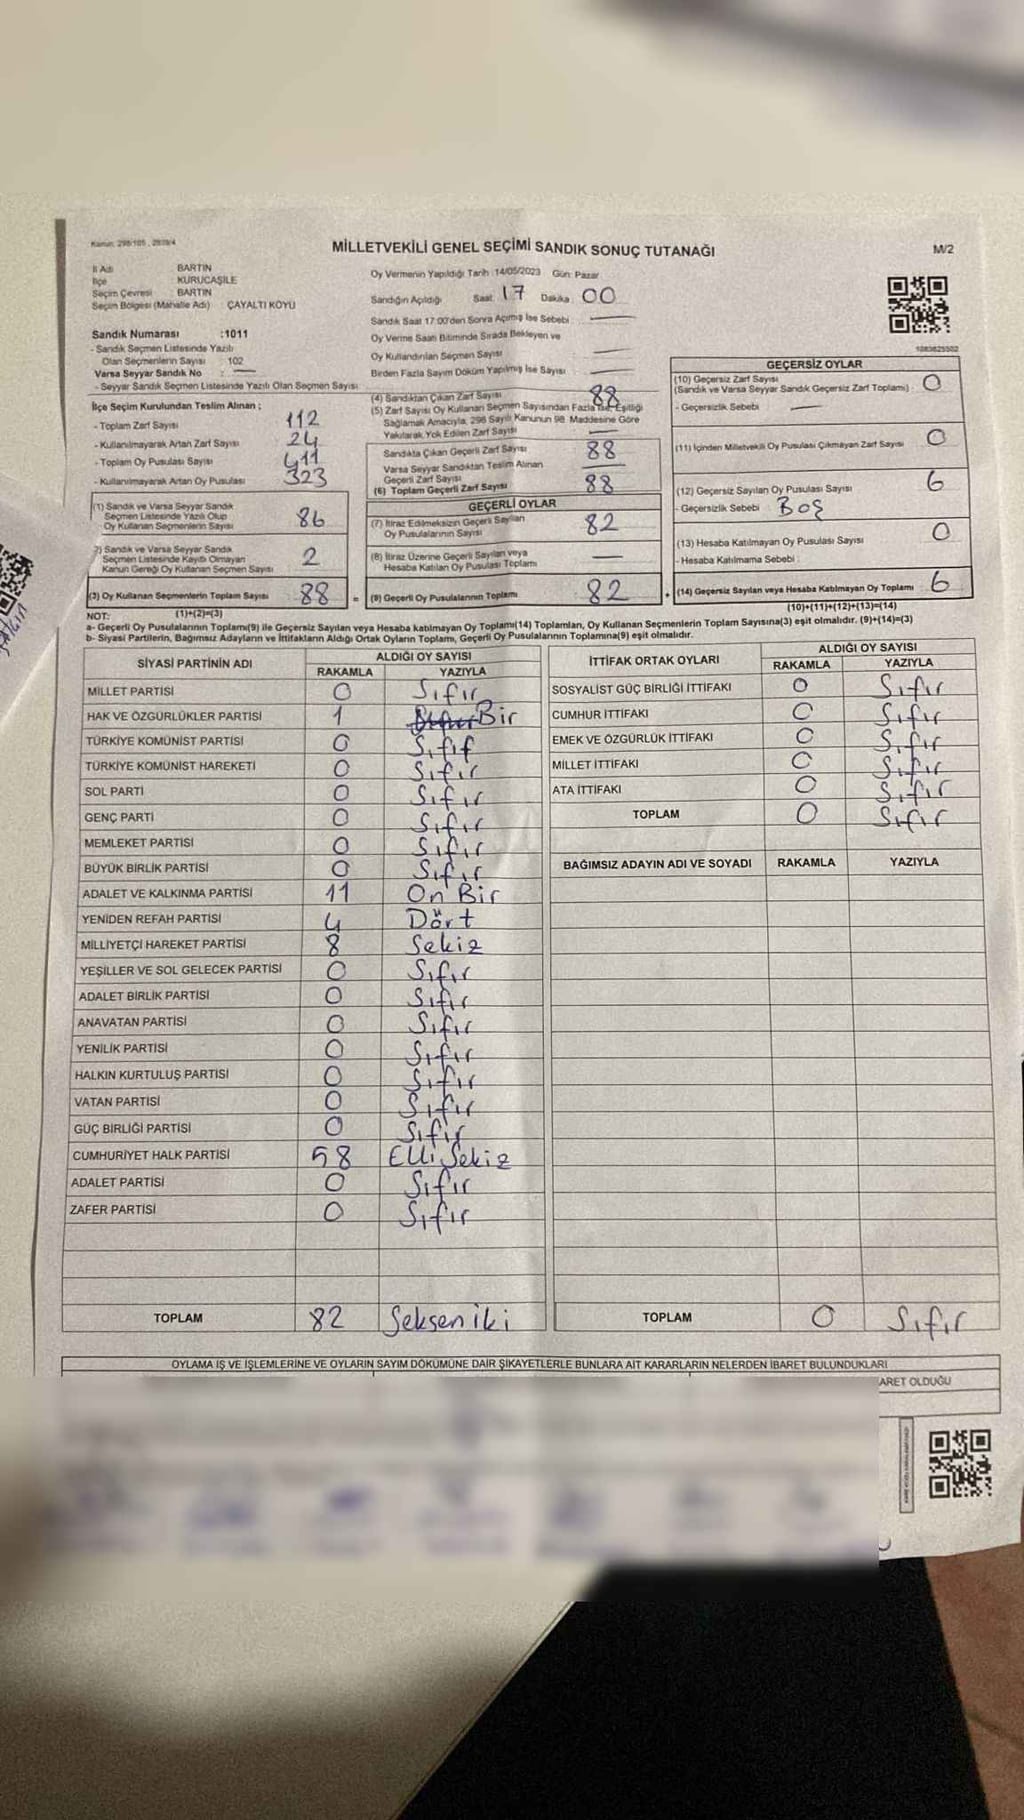 Kanun: 298/105, 2839/4
MİLLETVEKİLİ GENEL SEÇİMİ SANDIK SONUÇ TUTANAĞI
M/2
İl Adı BARTIN
İlçe KURUCAŞİLE
Seçim Çevresi BARTIN
Seçim Bölgesi (Mahalle Adı) ÇAYALTI KÖYÜ
Oy Vermenin Yapıldığı Tarih 14/05/2023 Gün: Pazar
Sandığın Açıldığı Saat 17 Dakika 00
Sandık Saat 17:00'den Sonra Açılmış İse Sebebi
Oy Verme Saati Bitiminde Sırada Bekleyen ve
Oy Kullandırılan Seçmen Sayısı
Birden Fazla Sayım Döküm Yapılmış İse Sayısı
Sandık Numarası :1011
- Sandık Seçmen Listesinde Yazılı
Olan Seçmenlerin Sayısı 102
Varsa Seyyar Sandık No :
- Seyyar Sandık Seçmen Listesinde Yazılı Olan Seçmen Sayısı
İlçe Seçim Kurulundan Teslim Alınan ;
- Toplam Zarf Sayısı 112
- Kullanılmayarak Artan Zarf Sayısı 24
- Toplam Oy Pusulası Sayısı 411
- Kullanılmayarak Artan Oy Pusulası 323
(1) Sandık ve Varsa Seyyar Sandık
Seçmen Listesinde Yazılı Olup
Oy Kullanan Seçmenlerin Sayısı 86
2) Sandık ve Varsa Seyyar Sandık
Seçmen Listesinde Kayıtlı Olmayan
Kanun Gereği Oy Kullanan Seçmen Sayısı 2
(3) Oy Kullanan Seçmenlerin Toplam Sayısı 88 =
(1)+(2)=(3)
(4) Sandıktan Çıkan Zarf Sayısı 88
(5) Zarf Sayısı Oy Kullanan Seçmen Sayısından Fazla İse, Eşitliği
Sağlamak Amacıyla, 298 Sayılı Kanunun 98. Maddesine Göre
Yakılarak Yok Edilen Zarf Sayısı
Sandıkta Çıkan Geçerli Zarf Sayısı 88
Varsa Seyyar Sandıktan Teslim Alınan
Geçerli Zarf Sayısı
(6) Toplam Geçerli Zarf Sayısı 88
GEÇERLİ OYLAR
(7) İtiraz Edilmeksizin Geçerli Sayılan
Oy Pusulalarının Sayısı 82
(8) İtiraz Üzerine Geçerli Sayılan veya
Hesaba Katılan Oy Pusulası Toplamı
(9) Geçerli Oy Pusulalarının Toplamı 82 +
1083625502
GEÇERSİZ OYLAR
(10) Geçersiz Zarf Sayısı
(Sandık ve Varsa Seyyar Sandık Geçersiz Zarf Toplamı) 0
- Geçersizlik Sebebi
(11) İçinden Milletvekili Oy Pusulası Çıkmayan Zarf Sayısı 0
(12) Geçersiz Sayılan Oy Pusulası Sayısı 6
- Geçersizlik Sebebi BOŞ
(13) Hesaba Katılmayan Oy Pusulası Sayısı 0
- Hesaba Katılmama Sebebi
(14) Geçersiz Sayılan veya Hesaba Katılmayan Oy Toplamı 6
(10)+(11)+(12)+(13)=(14)
NOT:
a- Geçerli Oy Pusulalarının Toplamı(9) ile Geçersiz Sayılan veya Hesaba katılmayan Oy Toplamı(14) Toplamları, Oy Kullanan Seçmenlerin Toplam Sayısına(3) eşit olmalıdır. (9)+(14)=(3)
b- Siyasi Partilerin, Bağımsız Adayların ve İttifakların Aldığı Ortak Oyların Toplamı, Geçerli Oy Pusulalarının Toplamına(9) eşit olmalıdır.
SİYASİ PARTİNİN ADI ALDIĞI OY SAYISI
RAKAMLA YAZIYLA
MİLLET PARTİSİ 0 Sıfır
HAK VE ÖZGÜRLÜKLER PARTİSİ 1 Bir
TÜRKİYE KOMÜNİST PARTİSİ 0 Sıfır
TÜRKİYE KOMÜNİST HAREKETİ 0 Sıfır
SOL PARTİ 0 Sıfır
GENÇ PARTİ 0 Sıfır
MEMLEKET PARTİSİ 0 Sıfır
BÜYÜK BİRLİK PARTİSİ 0 Sıfır
ADALET VE KALKINMA PARTİSİ 11 On Bir
YENİDEN REFAH PARTİSİ 4 Dört
MİLLİYETÇİ HAREKET PARTİSİ 8 Sekiz
YEŞİLLER VE SOL GELECEK PARTİSİ 0 Sıfır
ADALET BİRLİK PARTİSİ 0 Sıfır
ANAVATAN PARTİSİ 0 Sıfır
YENİLİK PARTİSİ 0 Sıfır
HALKIN KURTULUŞ PARTİSİ 0 Sıfır
VATAN PARTİSİ 0 Sıfır
GÜÇ BİRLİĞİ PARTİSİ 0 Sıfır
CUMHURİYET HALK PARTİSİ 58 Elli Sekiz
ADALET PARTİSİ 0 Sıfır
ZAFER PARTİSİ 0 Sıfır
TOPLAM 82 Seksen iki
İTTİFAK ORTAK OYLARI ALDIĞI OY SAYISI
RAKAMLA YAZIYLA
SOSYALİST GÜÇ BİRLİĞİ İTTİFAKI 0 Sıfır
CUMHUR İTTİFAKI 0 Sıfır
EMEK VE ÖZGÜRLÜK İTTİFAKI 0 Sıfır
MİLLET İTTİFAKI 0 Sıfır
ATA İTTİFAKI 0 Sıfır
TOPLAM 0 Sıfır
BAĞIMSIZ ADAYIN ADI VE SOYADI RAKAMLA YAZIYLA
TOPLAM 0 Sıfır
OYLAMA İŞ VE İŞLEMLERİNE VE OYLARIN SAYIM DÖKÜMÜNE DAİR ŞİKAYETLERLE BUNLARA AİT KARARLARIN NELERDEN İBARET BULUNDUKLARI
ARET OLDUĞU